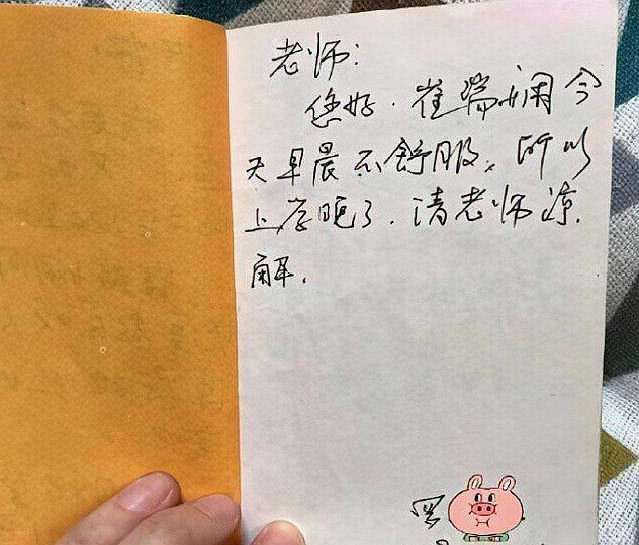 老师：
您好．崔瑞娴今
天早晨不舒服，所以
上学晚了．请老师谅
解．